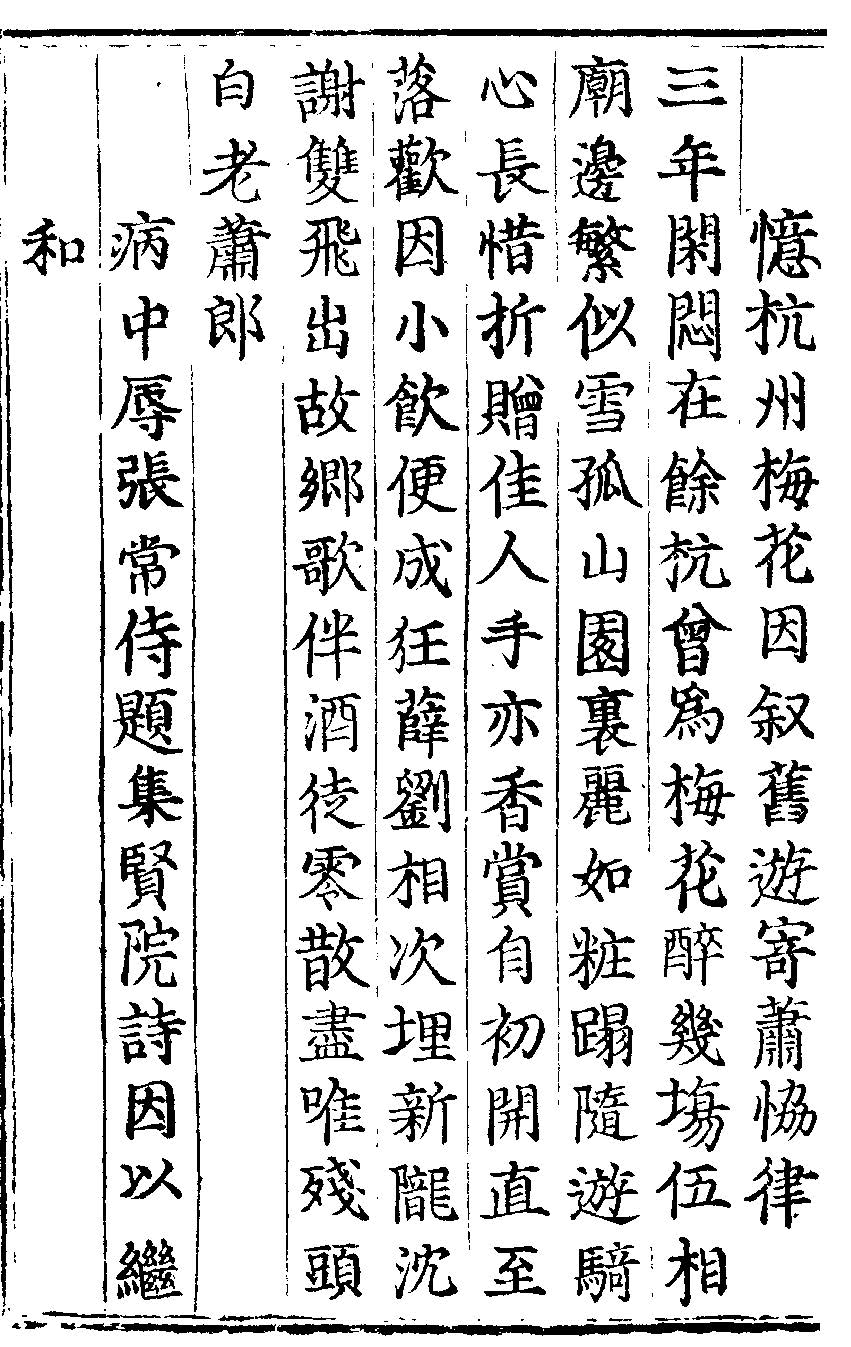 憶杭州梅花因叙舊遊寄蕭恊律
三年閑悶在餘杭曾爲梅花醉幾塲伍相
廟邊繁似雪孤山園裏麗如粧蹋隨遊騎
心長惜折贈佳人手亦香賞自初開直至
落歡因小飲便成狂薛劉相次埋新隴沈
謝雙飛出故鄉歌伴酒徒零散盡唯殘頭
白老蕭郎
病中辱張常侍題集賢院詩因以繼
和